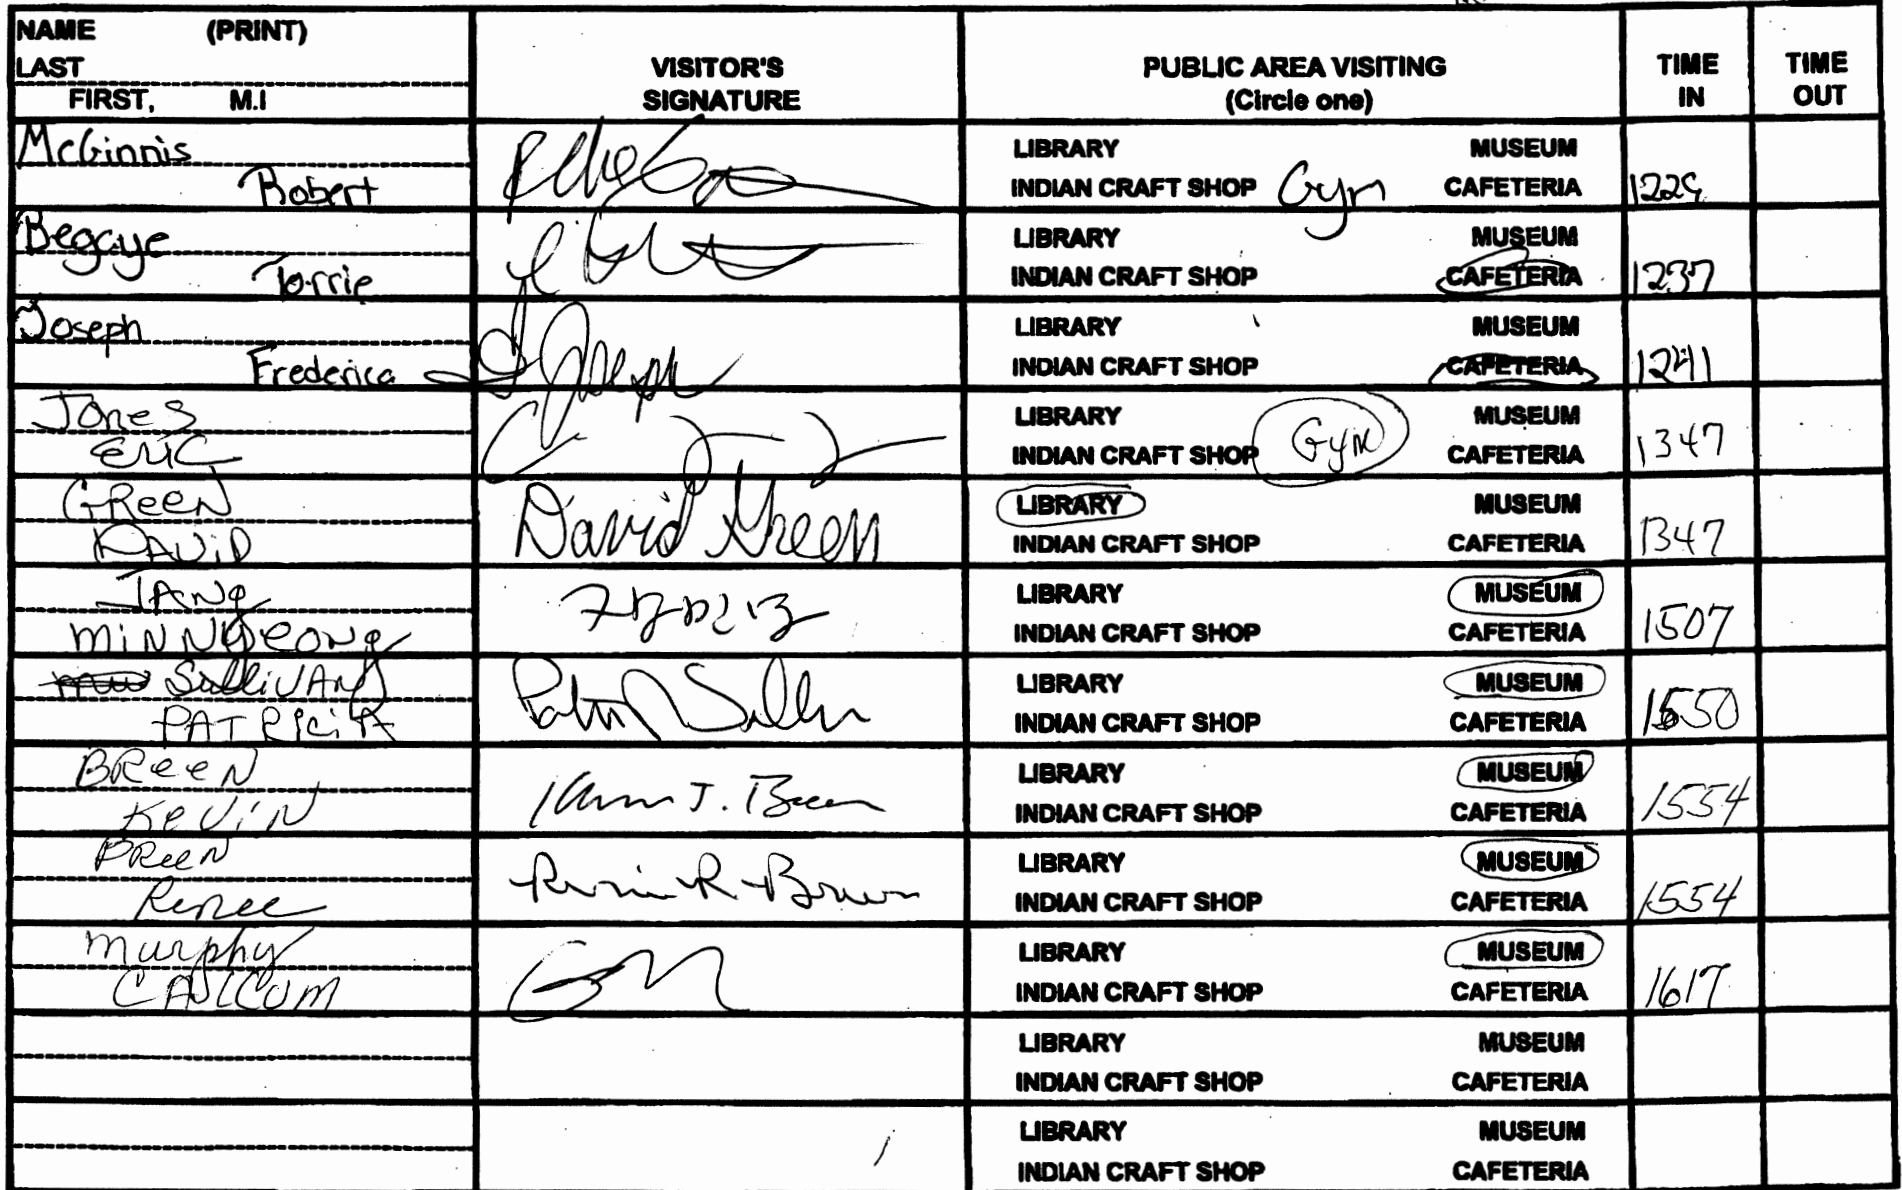 NAME (PRINT)
LAST
FIRST, M.I
VISITOR'S
SIGNATURE
PUBLIC AREA VISITING
(Circle one)
TIME
IN
TIME
OUT
McGinnis
Robert
LIBRARY MUSEUM
INDIAN CRAFT SHOP Gym CAFETERIA
Begaye
Torrie
LIBRARY MUSEUM
INDIAN CRAFT SHOP CAFETERIA
1237
Joseph
Frederica
J Joseph
LIBRARY MUSEUM
INDIAN CRAFT SHOP CAFETERIA
1241
Jones
ERIC
LIBRARY MUSEUM
INDIAN CRAFT SHOP Gym CAFETERIA
1347
GReeN
DAViD
David Green
LIBRARY MUSEUM
INDIAN CRAFT SHOP CAFETERIA
1347
JANg
MiNNyeoNg
LIBRARY MUSEUM
INDIAN CRAFT SHOP CAFETERIA
1507
SulliVAN
PATRiciA
LIBRARY MUSEUM
INDIAN CRAFT SHOP CAFETERIA
1550
BReeN
KeViN
Kevin J. Breen
LIBRARY MUSEUM
INDIAN CRAFT SHOP CAFETERIA
1554
BReeN
Renee
LIBRARY MUSEUM
INDIAN CRAFT SHOP CAFETERIA
1554
Murphy
LIBRARY MUSEUM
INDIAN CRAFT SHOP CAFETERIA
1617
LIBRARY MUSEUM
INDIAN CRAFT SHOP CAFETERIA
LIBRARY MUSEUM
INDIAN CRAFT SHOP CAFETERIA